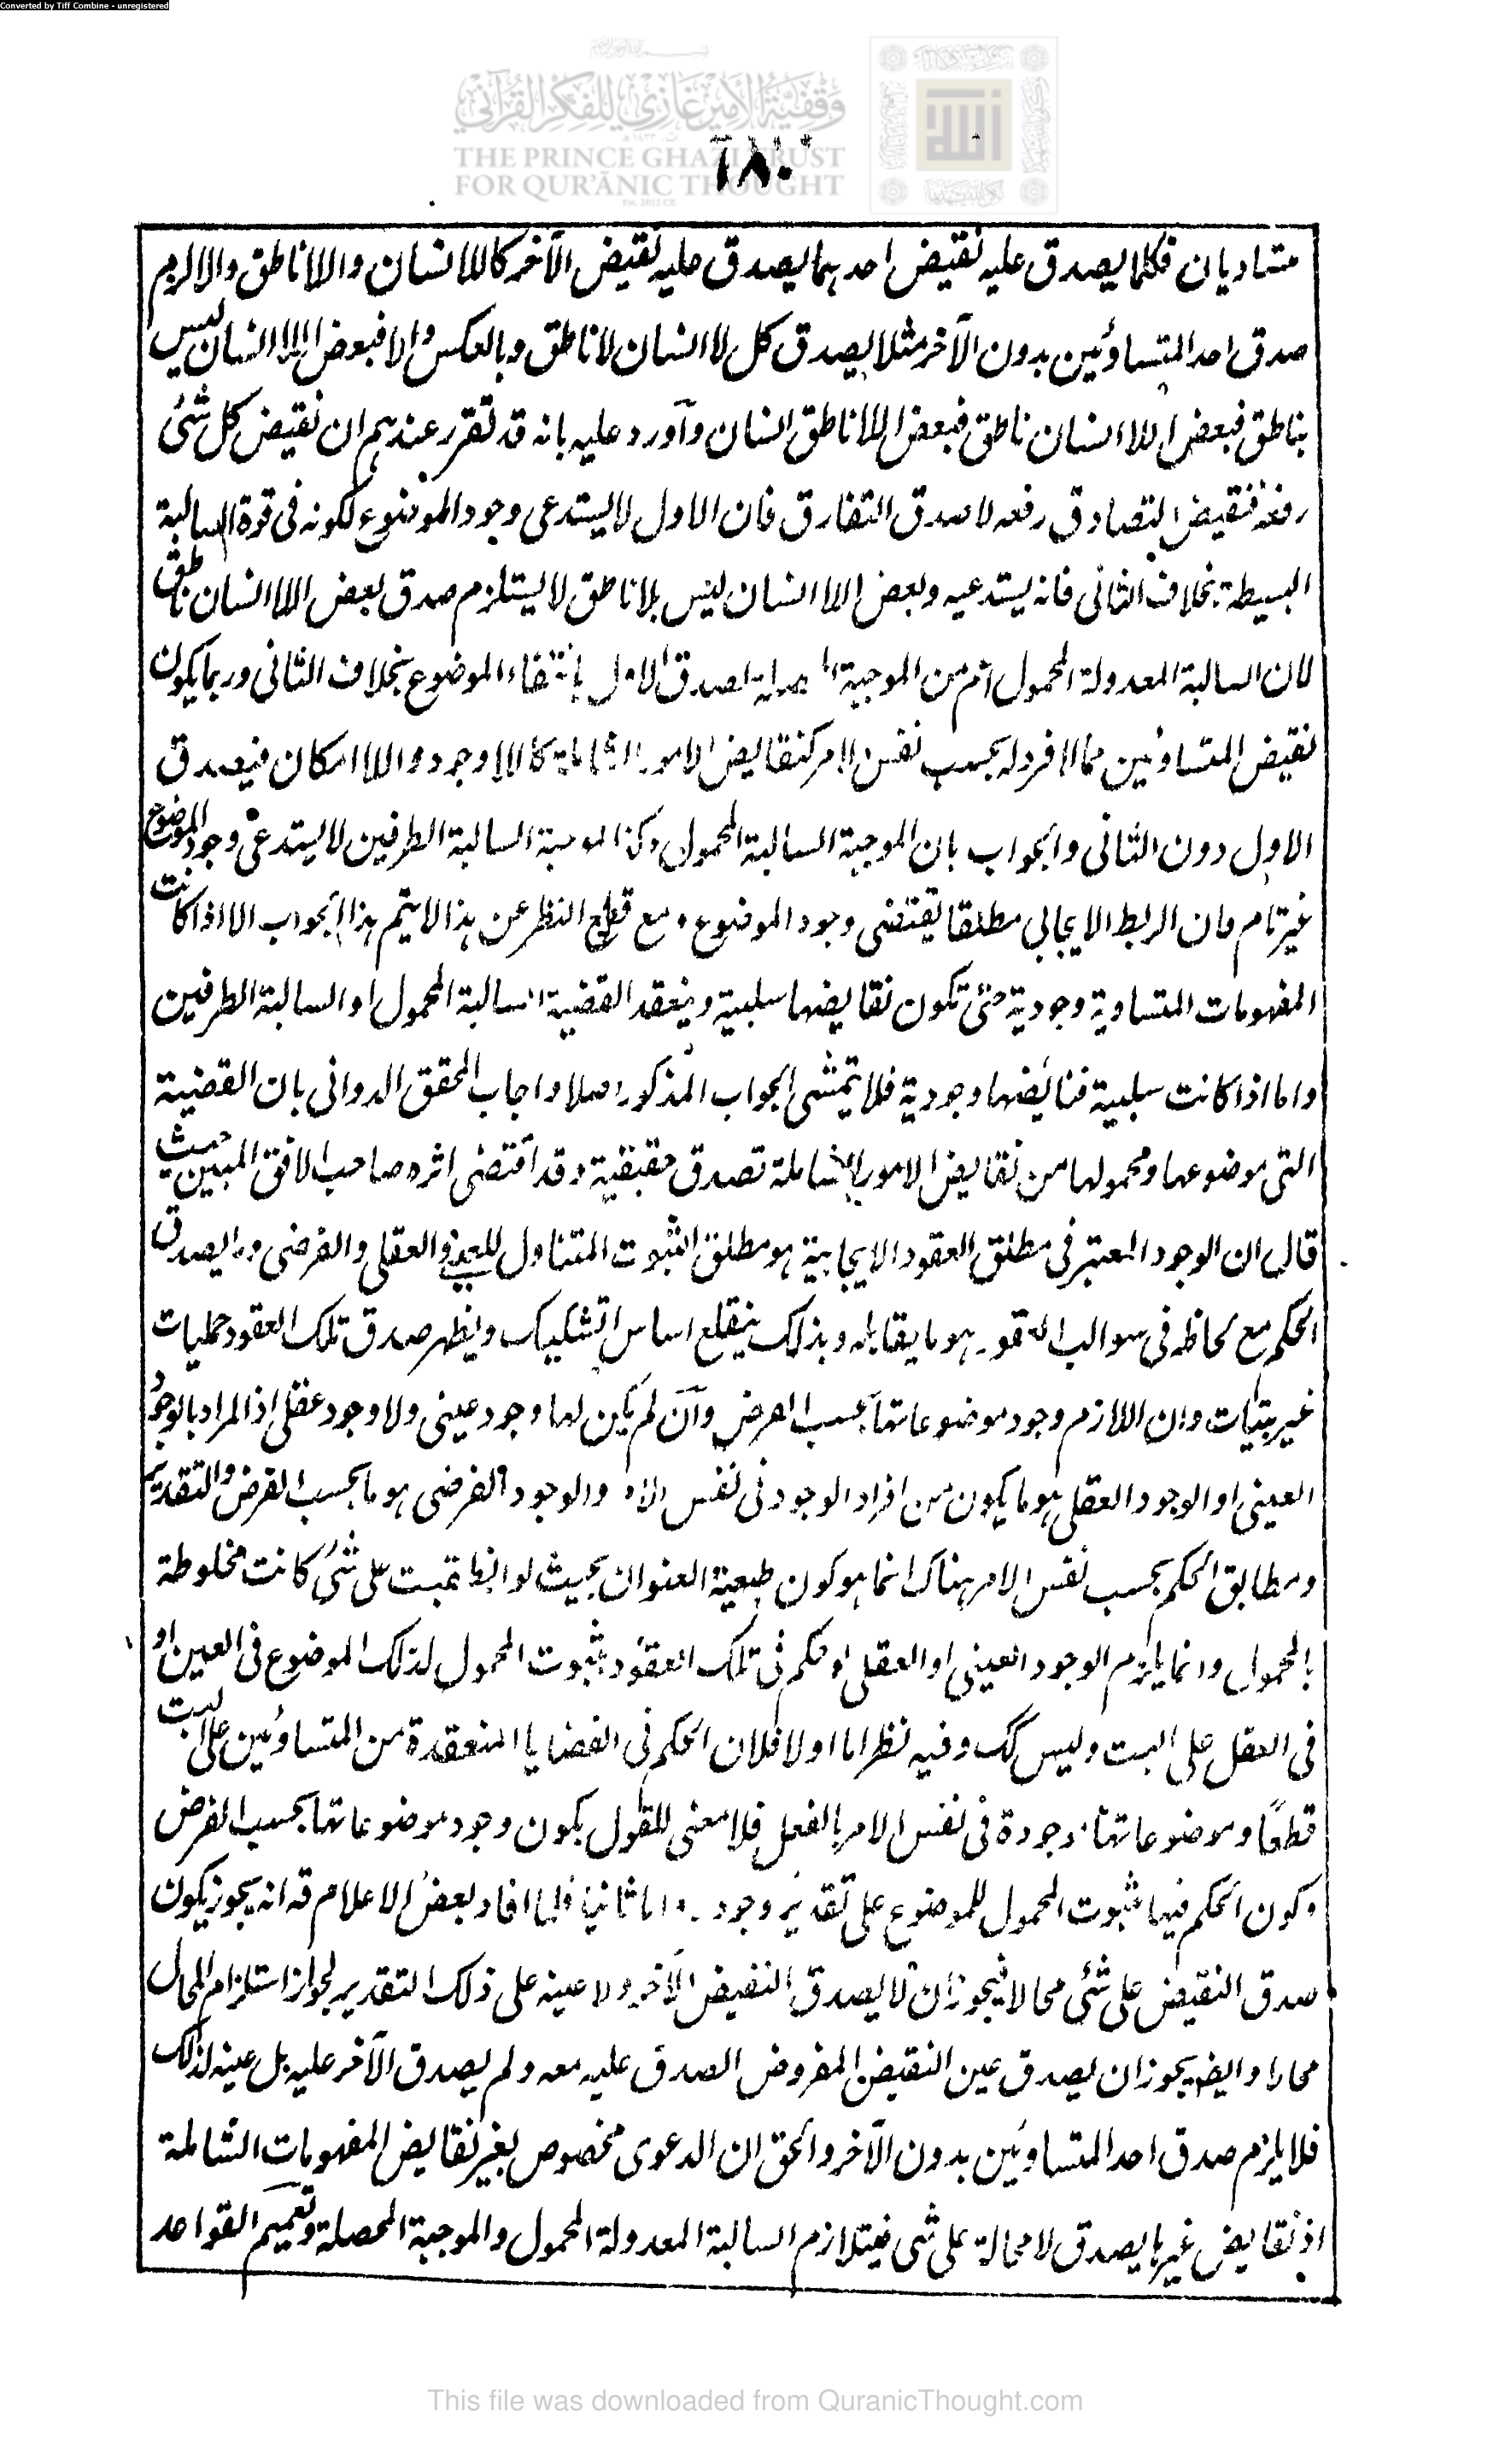 Converted by Tiff Combine - unregistered
وقفية الأمير غازي للفكر القرآني
THE PRINCE GHAZI TRUST
FOR QUR'ĀNIC THOUGHT
٦٨٠
متساويان فكلما يصدق عليه نقيض احدهما يصدق عليه نقيض الآخر كاللاانسان واللاناطق والا لزم
صدق احد المتساوئين بدون الآخر مثلا يصدق كل لاانسان لاناطق وبالعكس والا فبعض اللاانسان ليس
بناطق فبعض اللاانسان ناطق فبعض اللاناطق انسان وآورد عليه بانه قد تقرر عندهم ان نقيض كل شئ
رفعه فنقيض التصادق رفعه لا صدق التفارق فان الاول لا يستدعى وجود الموضوع لكونه فى قوة السالبة
البسيطة بخلاف الثانى فانه يستدعيه وبعض اللاانسان ليس بلاناطق لا يستلزم صدق بعض اللاانسان ناطق
لان السالبة المعدولة المحمول اعم من الموجبة المحصلة لصدق الاول بانتفاء الموضوع بخلاف الثانى وربما يكون
نقيض المتساوئين مما لا فرد له بحسب نفس الامر كنقايض الامور الشاملة كاللاوجود واللاامكان فيصدق
الاول دون الثانى والجواب بان الموجبة السالبة المحمول وكذا الموجبة السالبة الطرفين لا يستدعى وجود الموضوع
غير تام فان الربط الايجابى مطلقا يقتضى وجود الموضوع ومع قطع النظر عن هذا لا يتم هذا الجواب الا اذا كانت
المفهومات المتساوية وجودية حتى تكون نقايضها سلبية وينعقد القضية السالبة المحمول او السالبة الطرفين
واما اذا كانت سلبية فنقائضها وجودية فلا يتمشى الجواب المذكور اصلا واجاب المحقق الدوانى بان القضية
التى موضوعها ومحمولها من نقايض الامور الشاملة تصدق حقيقية وقد اقتضى اثره صاحب الافق المبين حيث
قال ان الوجود المعتبر فى مطلق العقود الايجابية هو مطلق الثبوت المتناول للعينى والعقلى والفرضى وما يصدق
الحكم مع لحاظه فى سوالب العقود هو ما يقابله وبذلك ينقلع اساس التشكيك ويظهر صدق تلك العقود حمليات
غير بتيات وان اللازم وجود موضوعاتها بحسب الفرض وآن لم يكن لها وجود عينى ولا وجود عقلى اذ المراد بالوجود
العينى او الوجود العقلى هو ما يكون من افراد الوجود فى نفس الامر والوجود الفرضى هو ما بحسب الفرض والتقدير
ومطابق الحكم بحسب نفس الامر هناك انما هو كون طبيعة العنوان بحيث لو انطبقت على شئ كانت مخلوطة
بالمحمول وانما يلزم الوجود العينى او العقلى لو حكم فى تلك العقود بثبوت المحمول لذلك الموضوع فى العين او
فى العقل على البت وليس كك وفيه نظر اما اولا فلان الحكم فى القضايا المنعقدة من المتساوئين على البت
قطعًا وموضوعاتها موجودة فى نفس الامر بالفعل فلا معنى للقول بكون وجود موضوعاتها بحسب الفرض
وكون الحكم فيها بثبوت المحمول للموضوع على تقدير وجوده واما ثانيا فلما افاد بعض الاعلام قه انه يجوز يكون
صدق النقيض على شئ محالا فيجوز ان لا يصدق النقيض الآخر ولا عينه على ذلك التقدير لجواز استلزام المحال
محالا وايضا يجوز ان يصدق عين النقيض المفروض الصدق عليه معه ولم يصدق الآخر عليه بل عينه لذلك
فلا يلزم صدق احد المتساوئين بدون الآخر والحق ان الدعوى مخصوص بغير نقايض المفهومات الشاملة
اذ نقايض غيرها يصدق لا محالة على شئ فيتلازم السالبة المعدولة المحمول والموجبة المحصلة وتعميم القواعد
This file was downloaded from QuranicThought.com